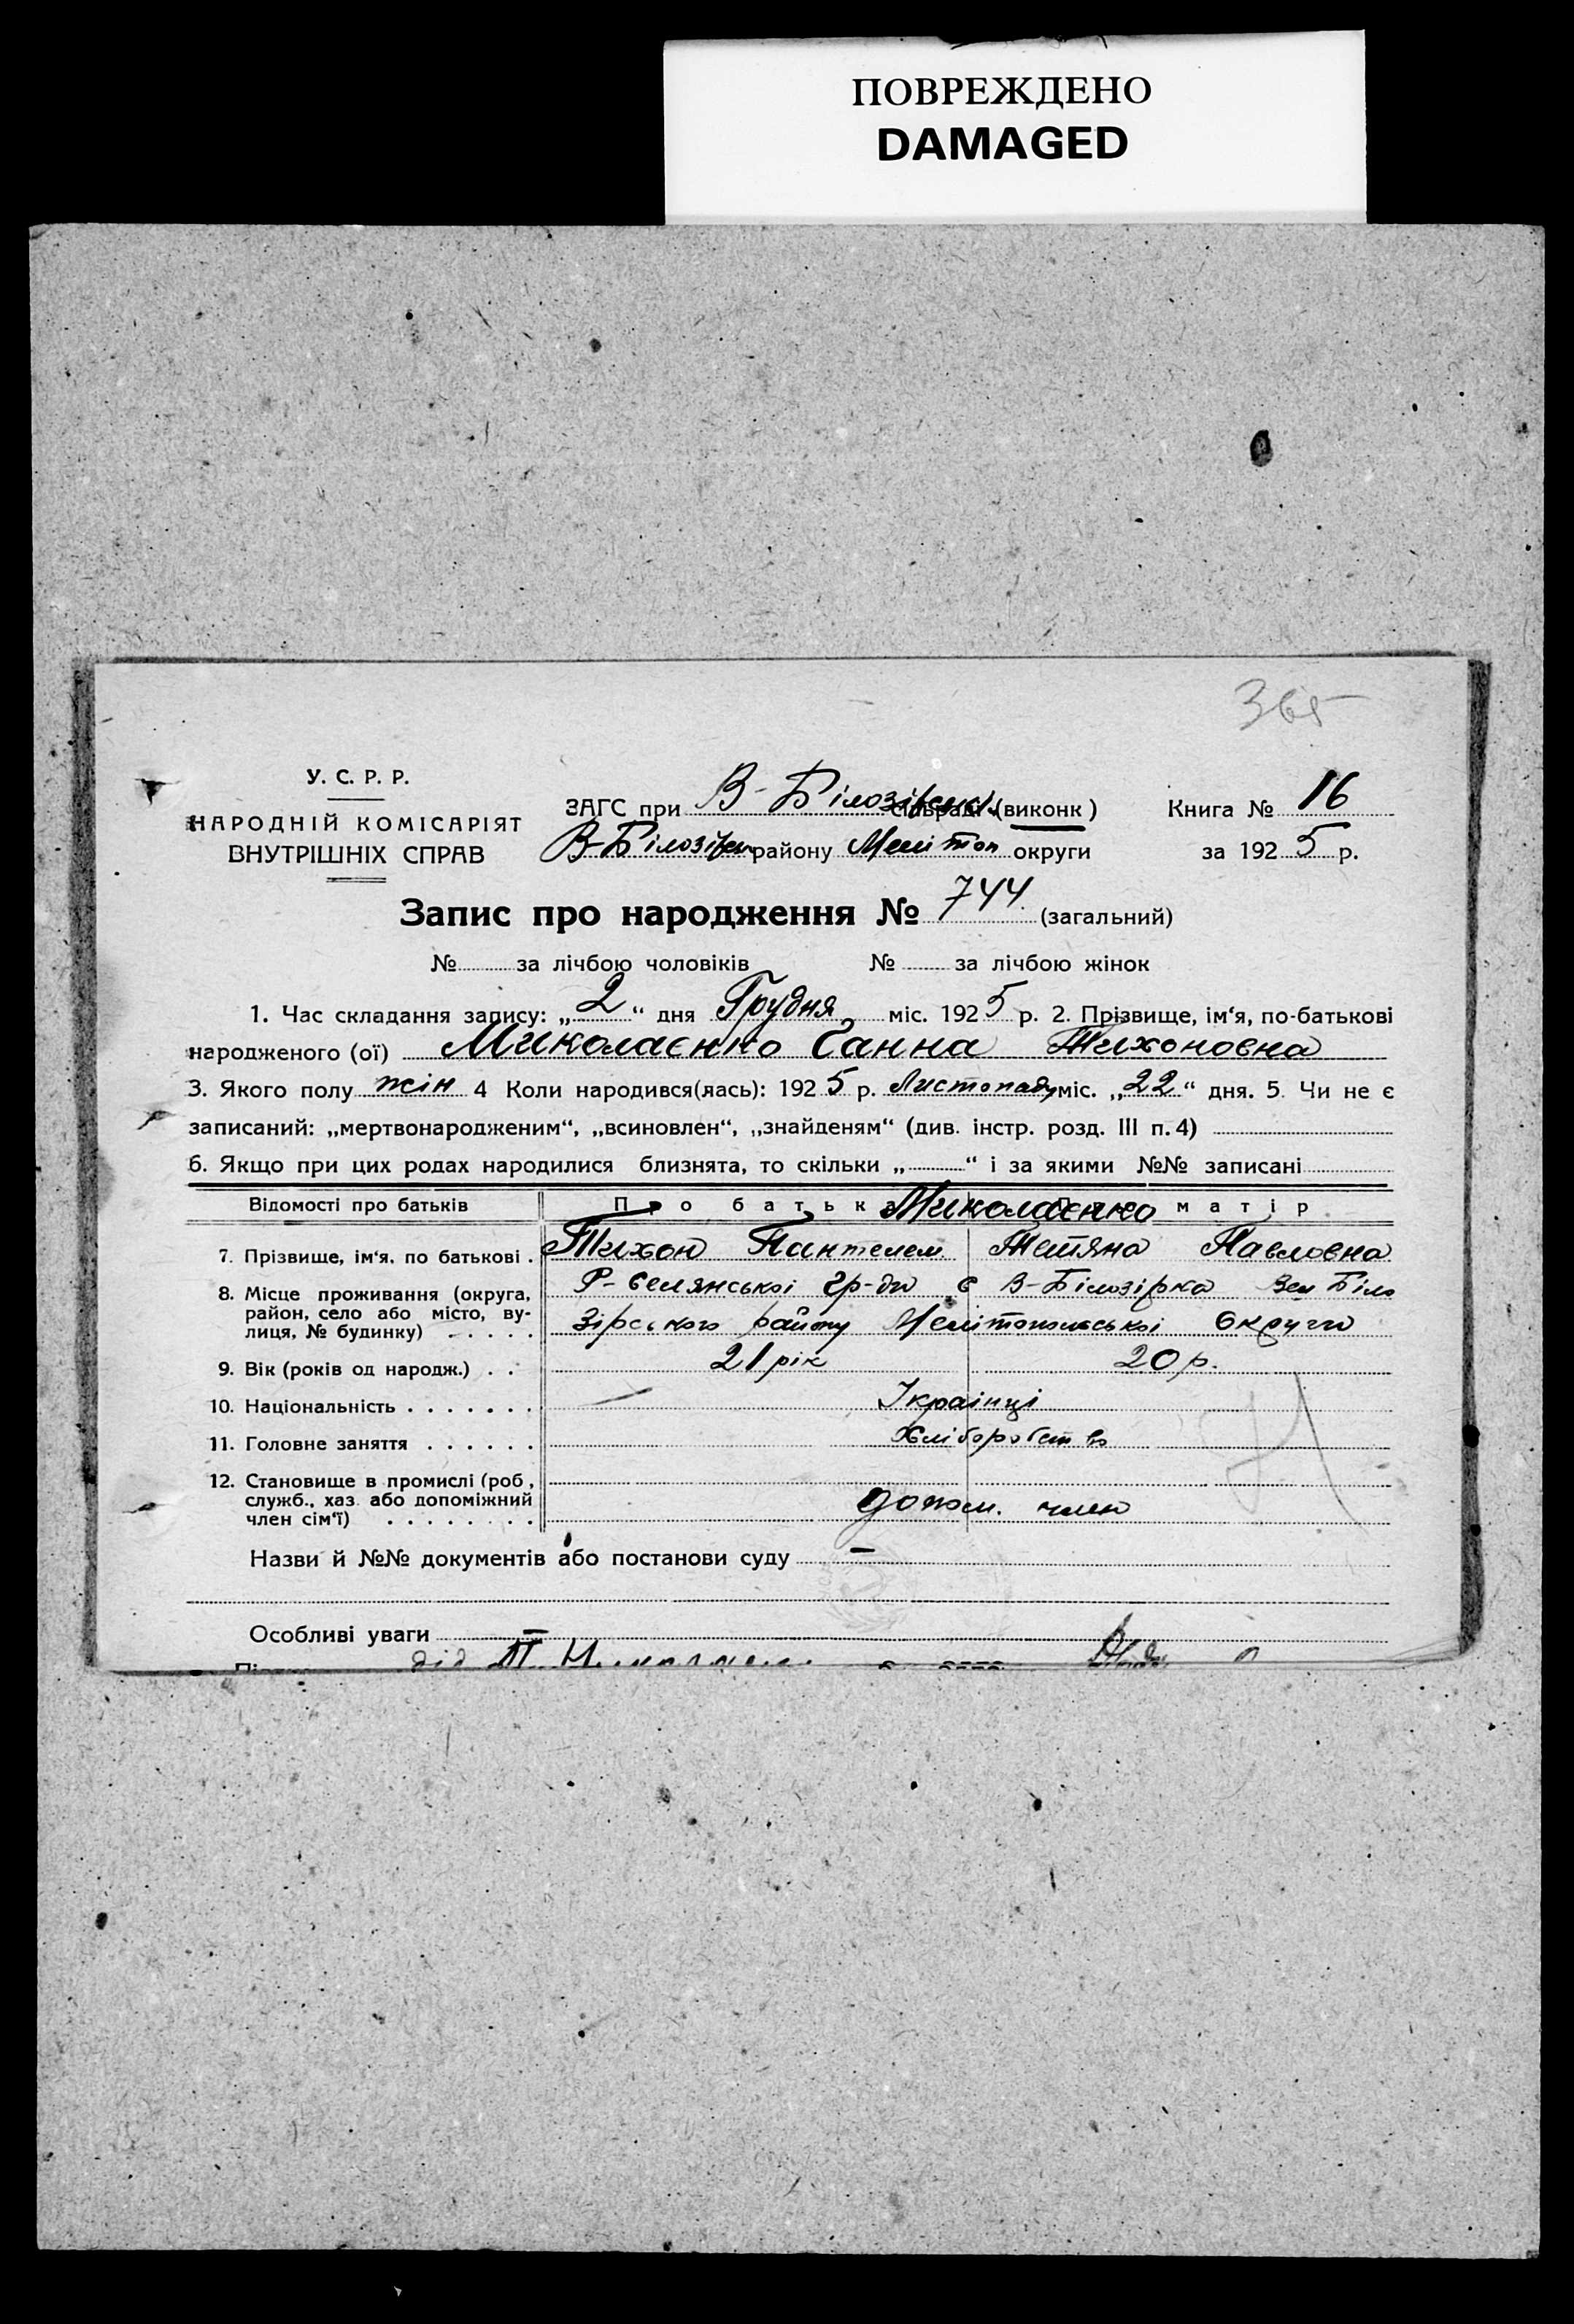 ПОВРЕЖДЕНО
DAMAGED
365
У. С. Р. Р.
НАРОДНІЙ КОМІСАРІЯТ
ВНУТРІШНІХ СПРАВ
ЗАГС при В-Білозірськ. сільраді (виконк)
В-Білозірськ району Мелітоп округи
Книга № 16
за 1925 р.
Запис про народження № 744 (загальний)
№ за лічбою чоловіків № за лічбою жінок
1. Час складання запису: „2“ дня Грудня міс. 1925 р. 2. Прізвище, ім‘я, по-батькові
народженого (ої) Миколаєнко Ганна Тихоновна
3. Якого полу жін 4 Коли народився(лась): 1925 р. Листопаду міс. „22“ дня. 5. Чи не є
записаний: „мертвонародженим“, „всиновлен“, „знайденям“ (див. інстр. розд. III п. 4)
6. Якщо при цих родах народилися близнята, то скільки „ “ і за якими №№ записані
Відомості про батьків Про батька Миколаєнко матір
7. Прізвище, ім‘я, по батькові . Тихон Пантелем Тетяна Павловна
8. Місце проживання (округа,
район, село або місто, ву-
лиця, № будинку) . . . . .
Р-Селянської гр-ди с В-Білозірка Вел Біло
зірського району Мелітопольської Округи
9. Вік (років од народж.) . . 21 рік 20 р.
10. Національність . . . . . . . Українці
11. Головне заняття . . . . . . Хліборобство
12. Становище в промислі (роб,
служб., хаз. або допоміжний
член сім‘ї) . . . . . . . .
допом. член
Назви й №№ документів або постанови суду —
Особливі уваги —